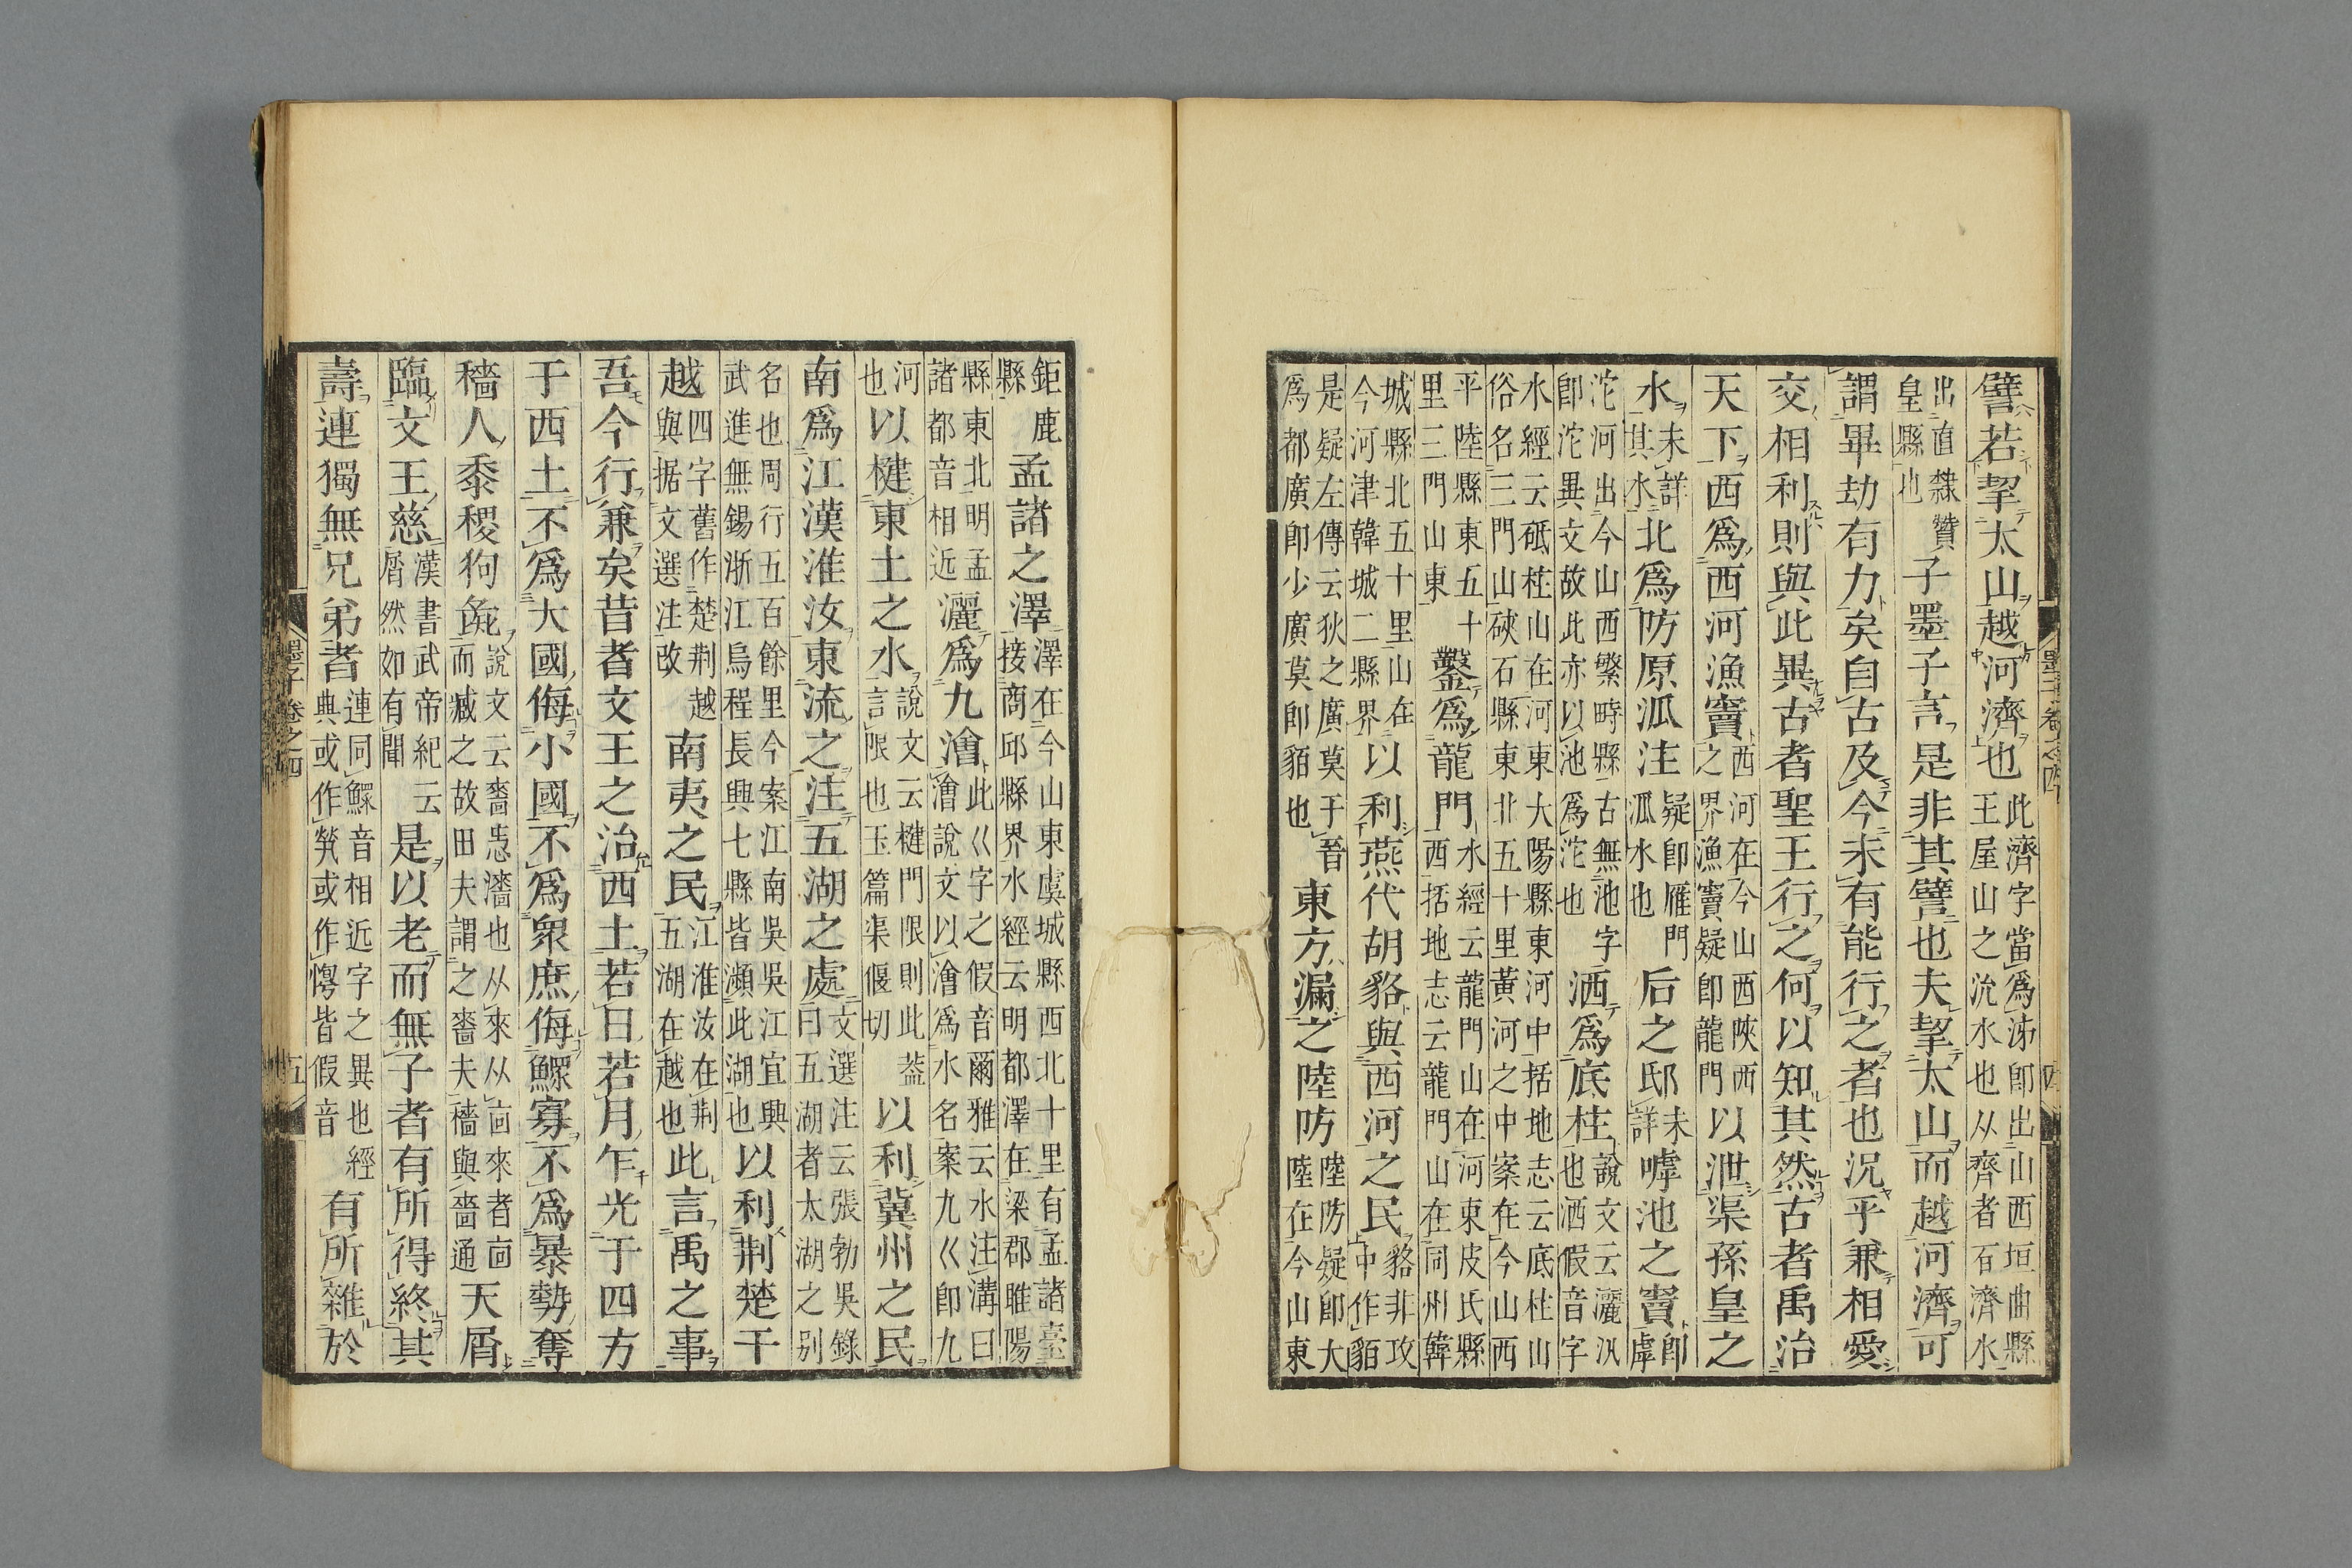 譬若挈太山越河濟也此濟字當爲泲卽出山西垣曲縣王屋山之沇水也从齊者石濟水
出直隸贊皇縣也子墨子言是非其譬也夫挈太山而越河濟可
謂畢劫有力矣自古及今未有能行之者也況乎兼相愛
交相利則與此異古者聖王行之何以知其然古者禹治
天下西爲西河漁竇西河在今山西陝西之界漁竇疑卽龍門以泄渠孫皇之
水未詳其水北爲防原泒注疑卽雁門泒水也后之邸未詳嘑池之竇卽虖
沱河出今山西繁畤縣古無池字卽沱異文故此亦以池爲沱也洒爲底柱說文云灑汎也洒假音字
水經云砥柱山在河東大陽縣東河中括地志云底柱山俗名三門山硤石縣東北五十里黃河之中案在今山西
平陸縣東五十里三門山東鑿爲龍門水經云龍門山在河東皮氏縣西括地志云龍門山在同州韓
城縣北五十里山在今河津韓城二縣界以利燕代胡貉與西河之民貉非攻中作貊
是疑左傳云狄之廣莫于晉爲都廣卽少廣莫卽貊也東方漏之陸防陸防疑卽大陸在今山東
墨子卷之四
四
鉅鹿縣孟諸之澤澤在今山東虞城縣西北十里有孟諸臺接商邱縣界水經云明都澤在梁郡睢陽
縣東北明孟諸都音相近灑爲九澮此巜字之假音爾雅云水注溝曰澮說文以澮爲水名案九巜卽九
河也以楗東土之水說文云楗門限則此蓋言限也玉篇渠偃切以利冀州之民
南爲江漢淮汝東流之注五湖之處文選注云張勃吳錄曰五湖者太湖之別
名也周行五百餘里今案江南吳吳江宜興武進無錫浙江烏程長興七縣皆瀕此湖也以利荆楚干
越四字舊作楚荆越與据文選注改南夷之民江淮汝在荆五湖在越也此言禹之事
吾今行兼矣昔者文王之治西土若日若月乍光于四方
于西土不爲大國侮小國不爲衆庶侮鰥寡不爲暴勢奪
穡人黍稷狗彘說文云嗇愛濇也从來从㐭來者㐭而臧之故田夫謂之嗇夫穡與嗇通天屑
臨文王慈漢書武帝紀云屑然如有聞是以老而無子者有所得終其
壽連獨無兄弟者連同鰥音相近字之異也經典或作煢或作惸皆假音有所雜於
墨子卷之四
五